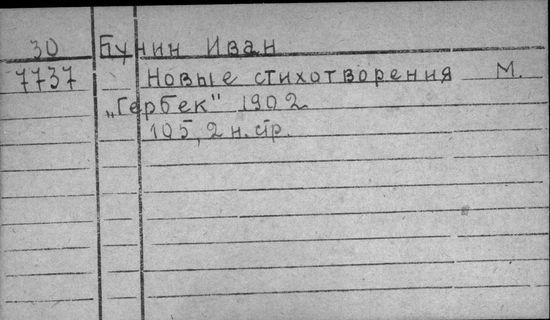 30 Бунин Иван
7737 Новые стихотворения М.
„Гербек" 1902
105, 2 н. стр.